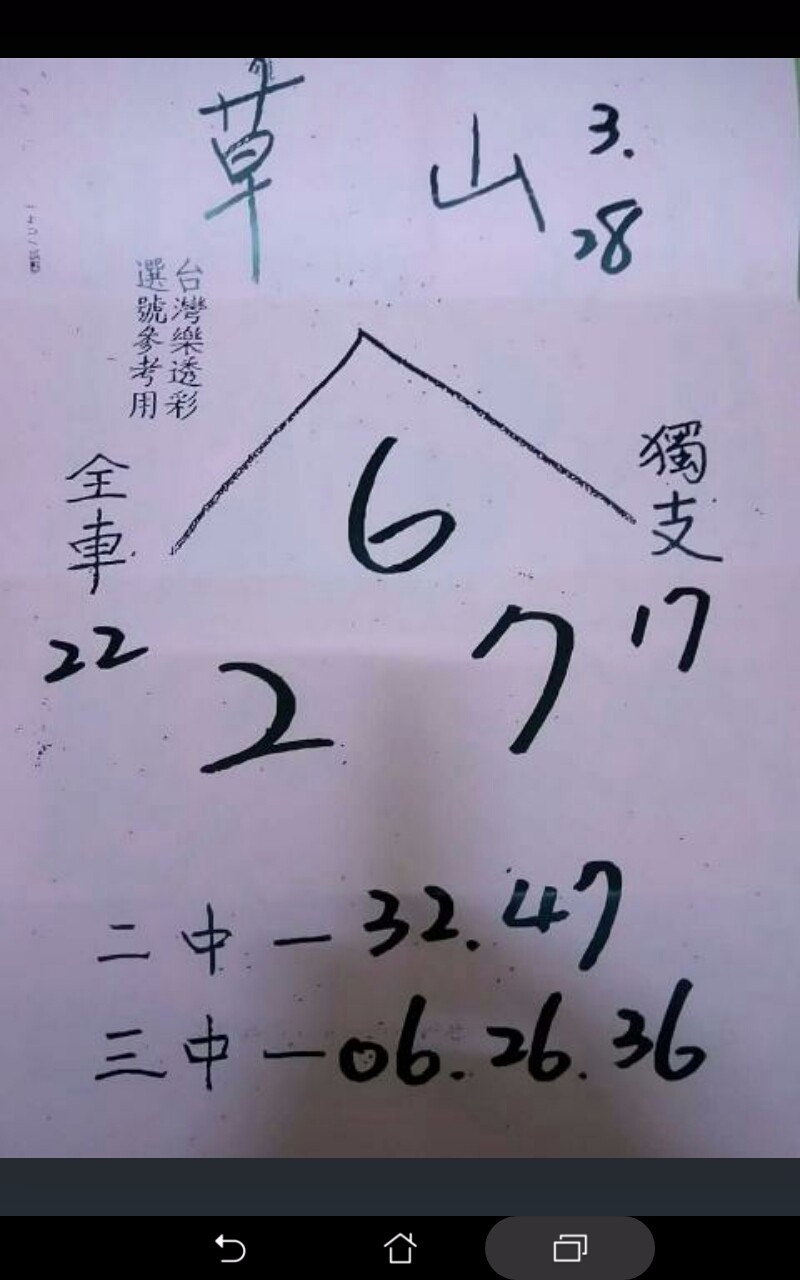 草山 3.28
台灣樂透彩
選號參考用
全車
22
獨支
17
6
2 7
二中一32.47
三中一06.26.36